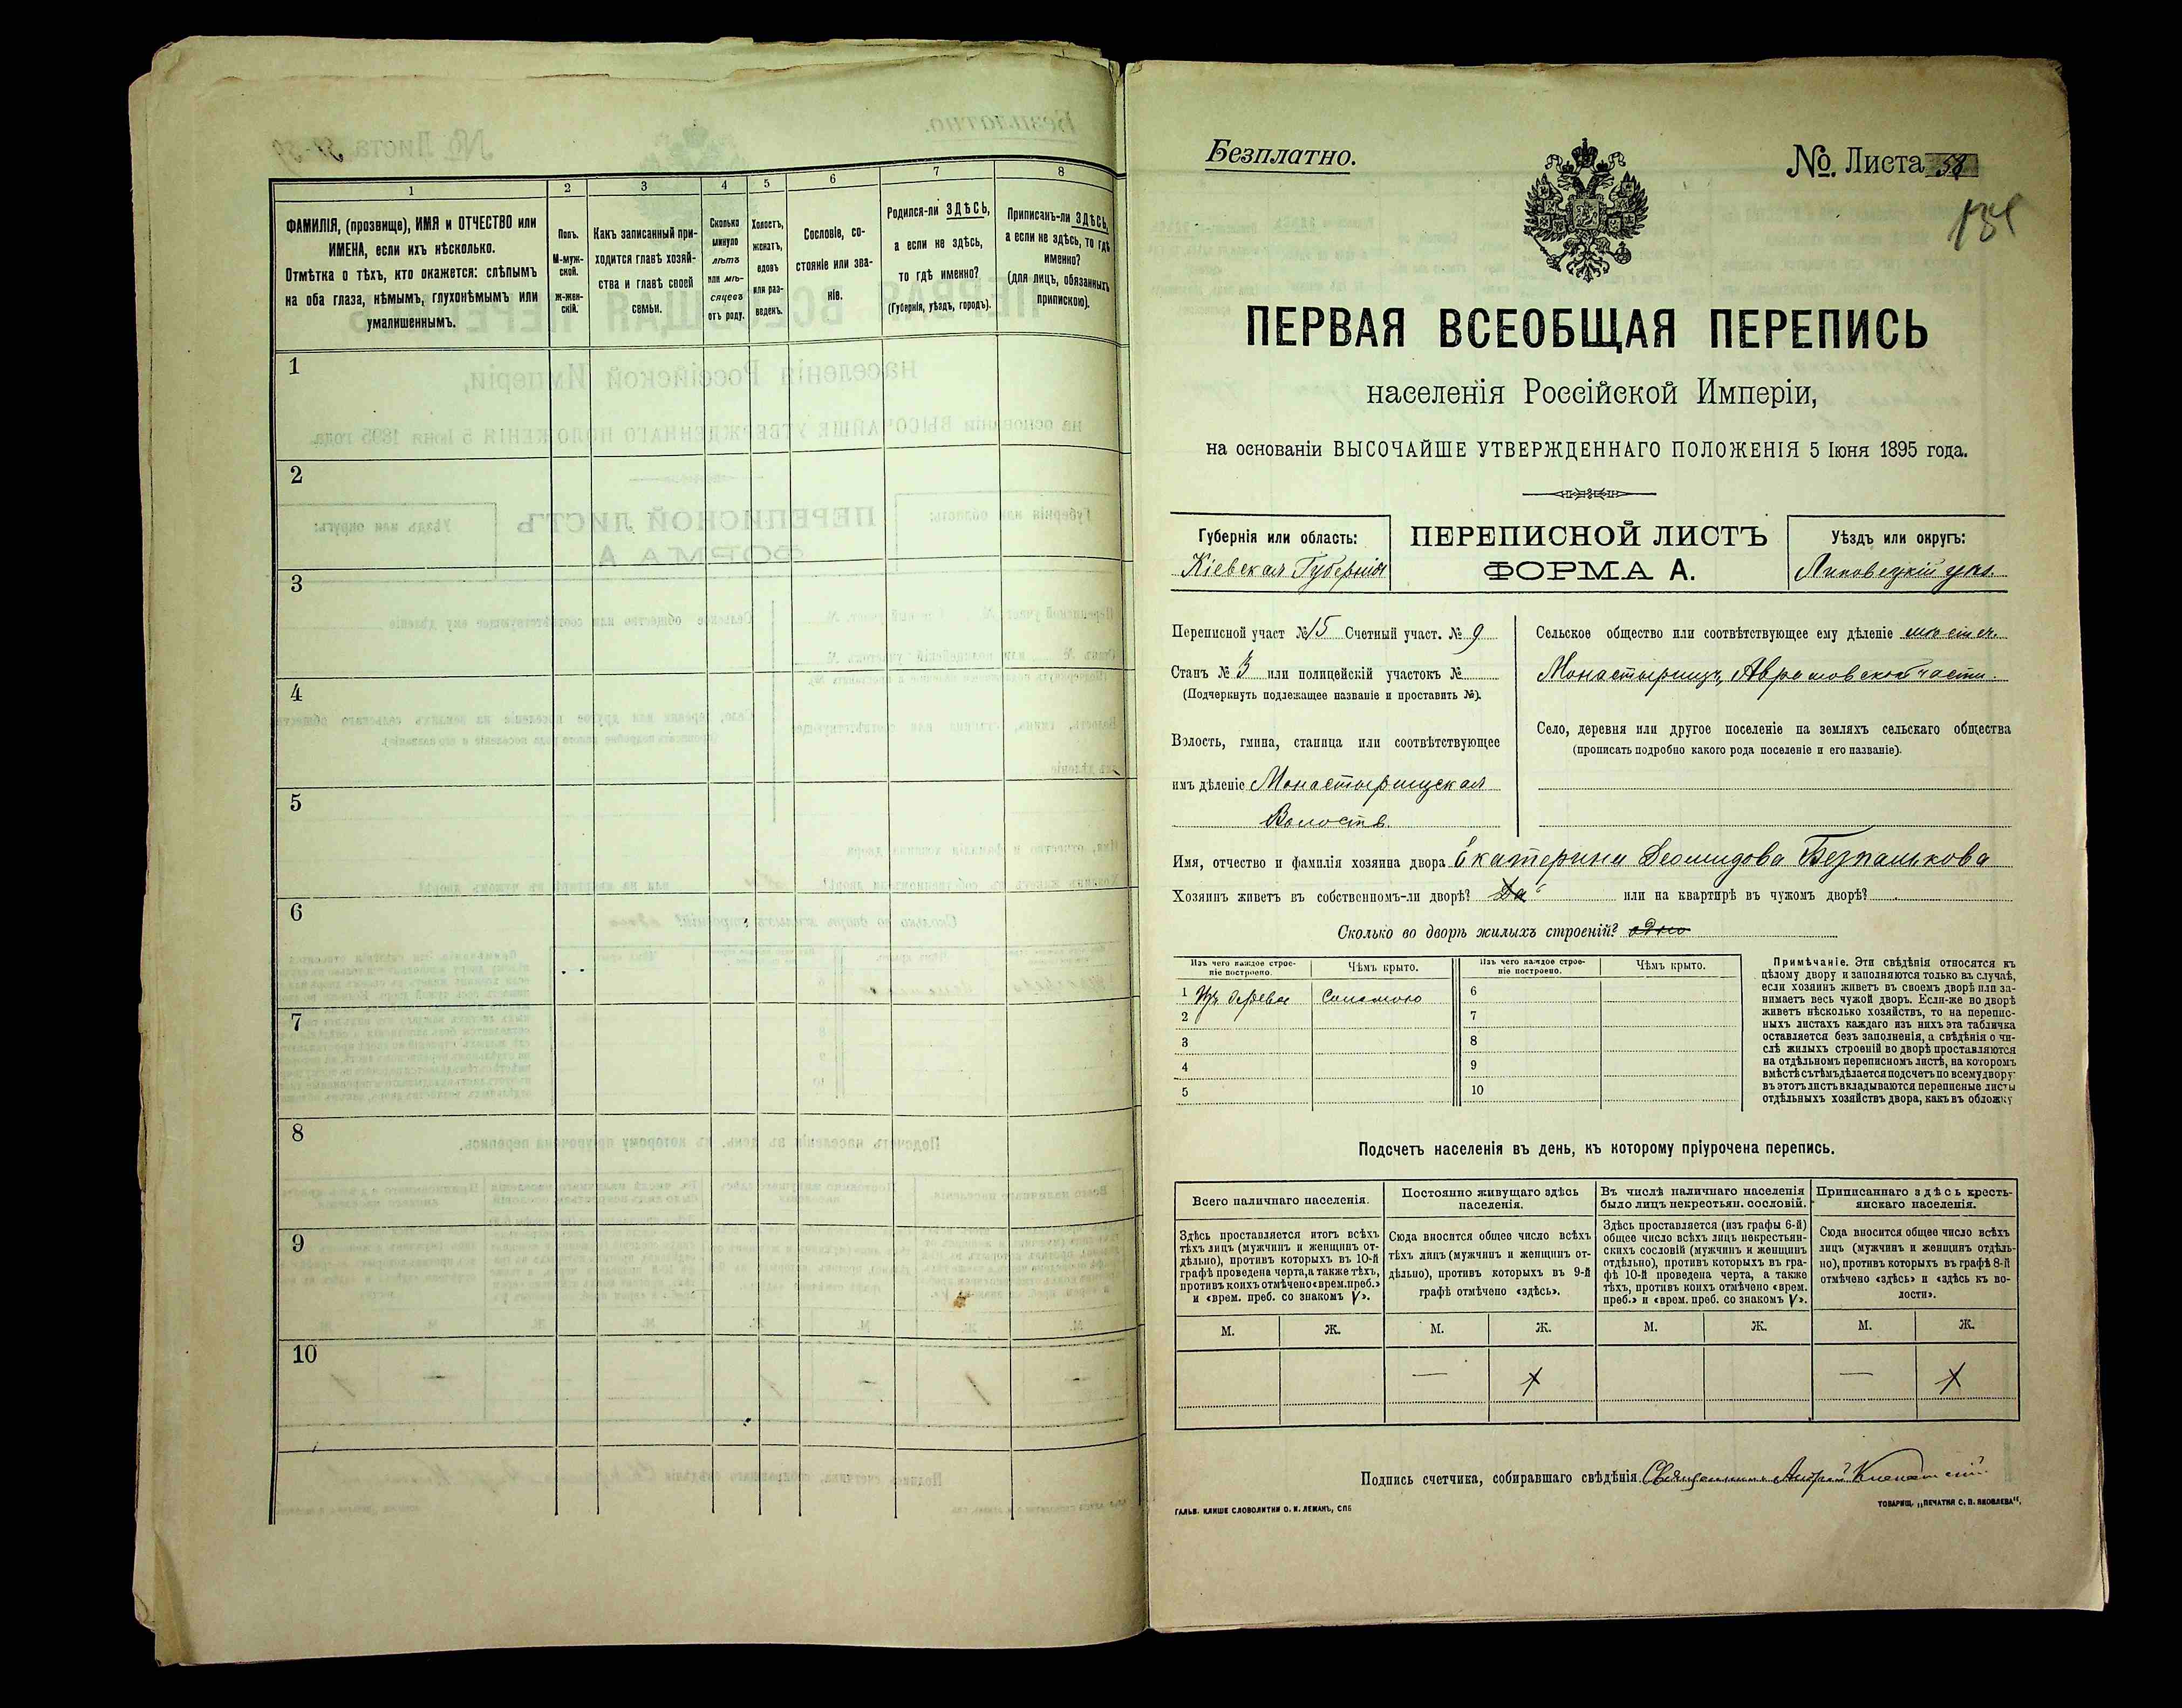 1 2 3 4 5 6 7 8
ФАМИЛІЯ, (прозвище), ИМЯ и ОТЧЕСТВО или
ИМЕНА, если ихъ нѣсколько.
Отмѣтка о тѣхъ, кто окажется: слѣпымъ
на оба глаза, нѣмымъ, глухонѣмымъ или
умалишеннымъ.
Полъ.
М-муж-
ской.
Ж-жен-
скій.
Какъ записанный при-
ходится главѣ хозяй-
ства и главѣ своей
семьи.
Сколько
минуло
лѣтъ
или мѣ-
сяцевъ
отъ роду.
Холостъ,
женатъ,
вдовъ
или раз-
веденъ.
Сословіе, со-
стояніе или зва-
ніе.
Родился-ли ЗДѢСЬ,
а если не здѣсь,
то гдѣ именно?
(Губернія, уѣздъ, городъ).
Приписанъ-ли ЗДѢСЬ,
а если не здѣсь, то гдѣ
именно?
(для лицъ, обязанныхъ
припискою).
1
2
3
4
5
6
7
8
9
10
Безплатно.
№. Листа 58
ПЕРВАЯ ВСЕОБЩАЯ ПЕРЕПИСЬ
населенія Россійской Имперіи,
на основаніи ВЫСОЧАЙШЕ УТВЕРЖДЕННАГО ПОЛОЖЕНІЯ 5 Іюня 1895 года.
Губернія или область:
Кіевская Губернія
ПЕРЕПИСНОЙ ЛИСТЪ
ФОРМА А.
Уѣздъ или округъ:
Липовецкій уѣз.
Переписной участ №15 Счетный участ. № 9
Станъ № 3 или полицейскій участокъ №
(Подчеркнуть подлежащее названіе и проставить №).
Волость, гмина, станица или соотвѣтствующее
имъ дѣленіе Монастырищская
Волость
Сельское общество или соотвѣтствующее ему дѣленіе мѣстеч.
Монастырищъ, Аврамовской части.
Село, деревня или другое поселеніе на земляхъ сельскаго общества
(прописать подробно какого рода поселеніе и его названіе).
Имя, отчество и фамилія хозяина двора Екатерина Деомидова Безпалькова
Хозяинъ живетъ въ собственномъ-ли дворѣ? Да или на квартирѣ въ чужомъ дворѣ?
Сколько во дворѣ жилыхъ строеній? одно
Изъ чего каждое строе-
ніе построено.
Чѣмъ крыто.
Изъ чего каждое строе-
ніе построено.
Чѣмъ крыто.
1 Изъ дерева соломою 6
2 7
3 8
4 9
5 10
Примѣчаніе. Эти свѣдѣнія относятся къ
цѣлому двору и заполняются только въ случаѣ,
если хозяинъ живетъ въ своемъ дворѣ или за-
нимаетъ весь чужой дворъ. Если-же во дворѣ
живетъ нѣсколько хозяйствъ, то на перепис-
ныхъ листахъ каждаго изъ нихъ эта табличка
оставляется безъ заполненія, а свѣдѣнія о чи-
слѣ жилыхъ строеній во дворѣ проставляются
на отдѣльномъ переписномъ листѣ, на которомъ
вмѣстѣ съ тѣмъ дѣлается подсчетъ по всему двору:
въ этотъ листъ вкладываются переписные листы
отдѣльныхъ хозяйствъ двора, какъ въ обложку
Подсчетъ населенія въ день, къ которому пріурочена перепись.
Всего наличнаго населенія.
Здѣсь проставляется итогъ всѣхъ
тѣхъ лицъ (мужчинъ и женщинъ от-
дѣльно), противъ которыхъ въ 10-й
графѣ проведена черта, а также тѣхъ,
противъ коихъ отмѣчено «врем. преб.»
и «врем. преб. со знакомъ V».
Постоянно живущаго здѣсь
населенія.
Сюда вносится общее число всѣхъ
тѣхъ лицъ (мужчинъ и женщинъ от-
дѣльно), противъ которыхъ въ 9-й
графѣ отмѣчено «здѣсь».
Въ числѣ наличнаго населенія
было лицъ некрестьян. сословій.
Здѣсь проставляется (изъ графы 6-й)
общее число всѣхъ лицъ некрестьян-
скихъ сословій (мужчинъ и женщинъ
отдѣльно), противъ которыхъ въ гра-
фѣ 10-й проведена черта, а также
тѣхъ, противъ коихъ отмѣчено «врем.
преб.» и «врем. преб. со знакомъ V».
Приписаннаго здѣсь кресть-
янскаго населенія.
Сюда вносится общее число всѣхъ
лицъ (мужчинъ и женщинъ отдѣль-
но), противъ которыхъ въ графѣ 8-й
отмѣчено «здѣсь» и «здѣсь къ во-
лости».
М. Ж. М. Ж. М. Ж. М. Ж.
Подпись счетчика, собиравшаго свѣдѣнія Священникъ Андрей
ГАЛЬВ. КЛИШЕ СЛОВОЛИТНИ О. И. ЛЕМАНЪ, СПБ
ТОВАРИЩ. „ПЕЧАТНЯ С. П. ЯКОВЛЕВА“.